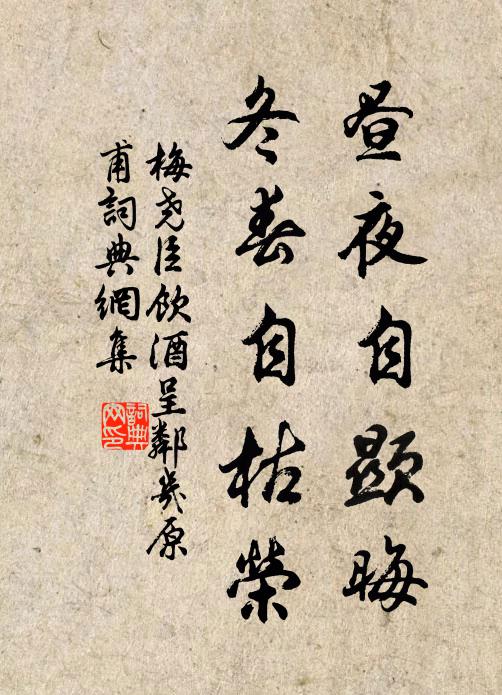 昼夜自顯晦
冬春自枯榮
梅尭臣飲酒呈鄰幾原
甫詞典網集
詞典
网印